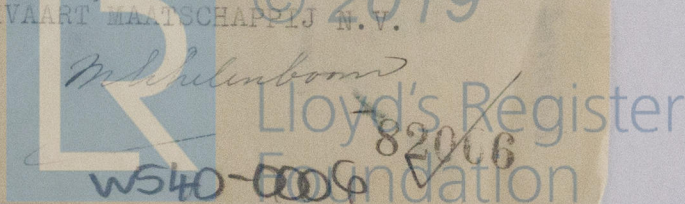 VAART MAATSCHAPPIJ N.V.
© 2019
LR
Lloyd's Register
Foundation
82006
W540-0006